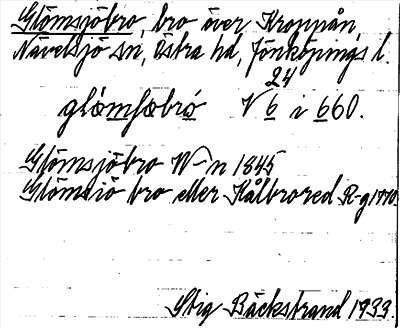 Glömsjöbro, bro över Kroppån,
Nävelsjö sn, Östra hd, Jönköpings l.
24
glömʃøbro V 6 i 660.
Glömsjöbro W-n 1845
Glömsiö bro eller Kålbrored R-g 1770.
Stig Bäckstrand 1933.